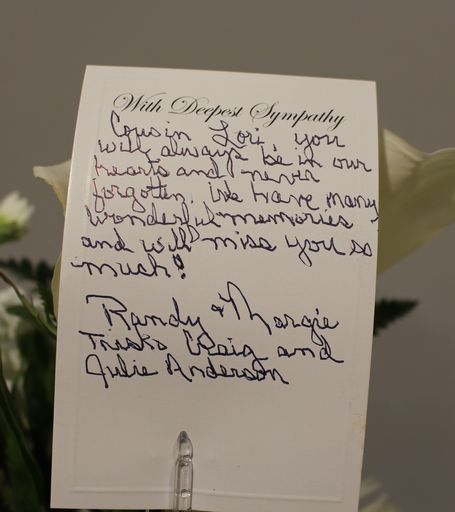 With Deepest Sympathy
Cousin Lori, you
will always be in our
hearts and never
forgotten. We have many
wonderful memories
and will miss you so
much!
Randy & Margie
Craig and
Julie Anderson